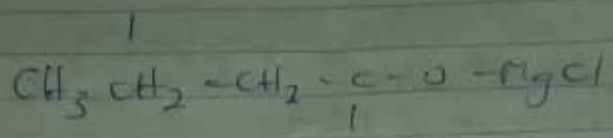 CH3 CH2 - CH2 - C - O - MgCl